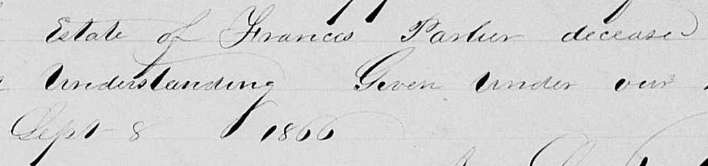 Estate of Francis Parlier deceased
Understanding Given under our
Sept 8 1866